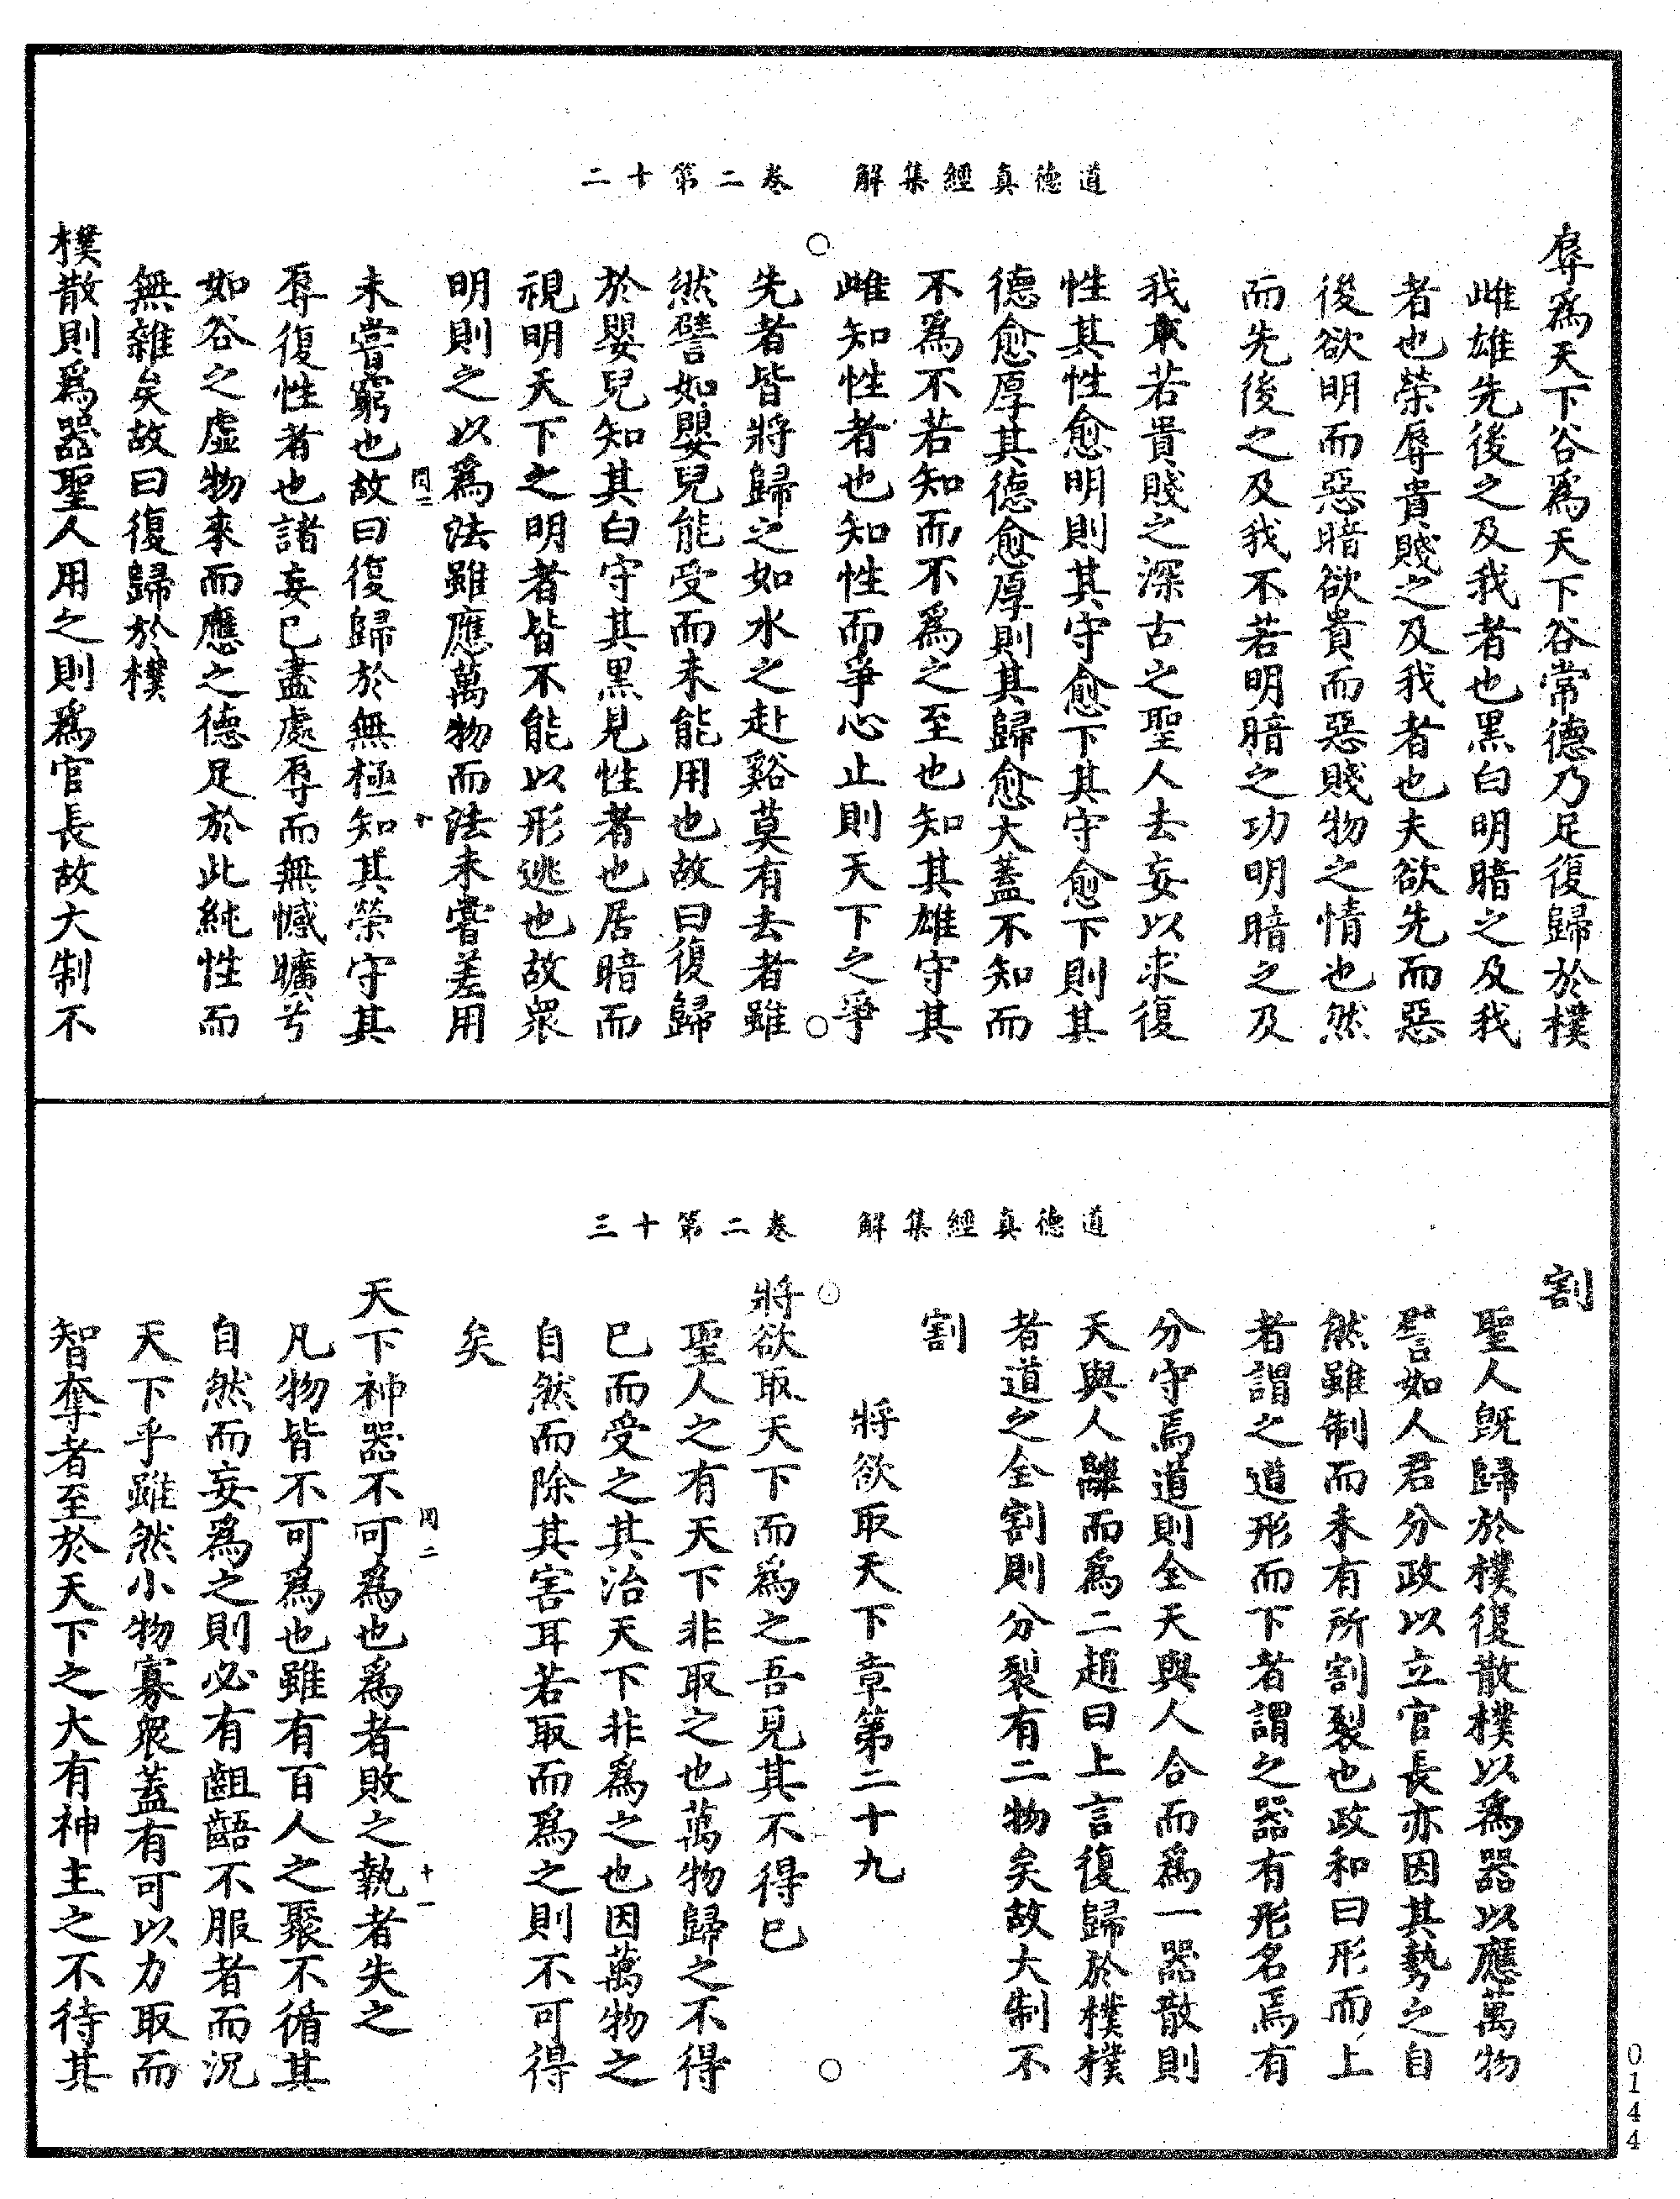 道德真經集解　卷二第十二
辱爲天下谷爲天下谷常德乃足復歸於樸
雌雄先後之及我者也黑白明暗之及我
者也榮辱貴賤之及我者也夫欲先而惡
後欲明而惡暗欲貴而惡賤物之情也然
而先後之及我不若明暗之功明暗之及
我東若貴賤之深古之聖人去妄以求復
性其性愈明則其守愈下其守愈下則其
德愈厚其德愈厚則其歸愈大蓋不知而
不爲不若知而不爲之至也知其雄守其
雌知性者也知性而爭心止則天下之爭
先者皆將歸之如水之赴谿莫有去者雖
然譬如嬰兒能受而未能用也故曰復歸
於嬰兒知其白守其黑見性者也居暗而
視明天下之明者皆不能以形逃也故衆
明則之以爲法雖應萬物而法未嘗差用
同二　十
未嘗窮也故曰復歸於無極知其榮守其
辱復性者也諸妄已盡處辱而無憾曠兮
如谷之虛物來而應之德足於此純性而
無雜矣故曰復歸於樸
樸散則爲器聖人用之則爲官長故大制不
道德真經集解　卷二第十三
割
聖人既歸於樸復散樸以爲器以應萬物
譬如人君分政以立官長亦因其勢之自
然雖制而未有所割裂也政和曰形而上
者謂之道形而下者謂之器有形名焉有
分守焉道則全天與人合而爲一器散則
天與人離而爲二趙曰上言復歸於樸樸
者道之全割則分裂有二物矣故大制不
割
將欲取天下章第二十九
將欲取天下而爲之吾見其不得已
聖人之有天下非取之也萬物歸之不得
已而受之其治天下非爲之也因萬物之
自然而除其害耳若取而爲之則不可得
矣
同二　十一
天下神器不可爲也爲者敗之執者失之
凡物皆不可爲也雖有百人之聚不循其
自然而妄爲之則必有齟齬不服者而況
天下乎雖然小物寡衆蓋有可以力取而
智奪者至於天下之大有神主之不待其
0144